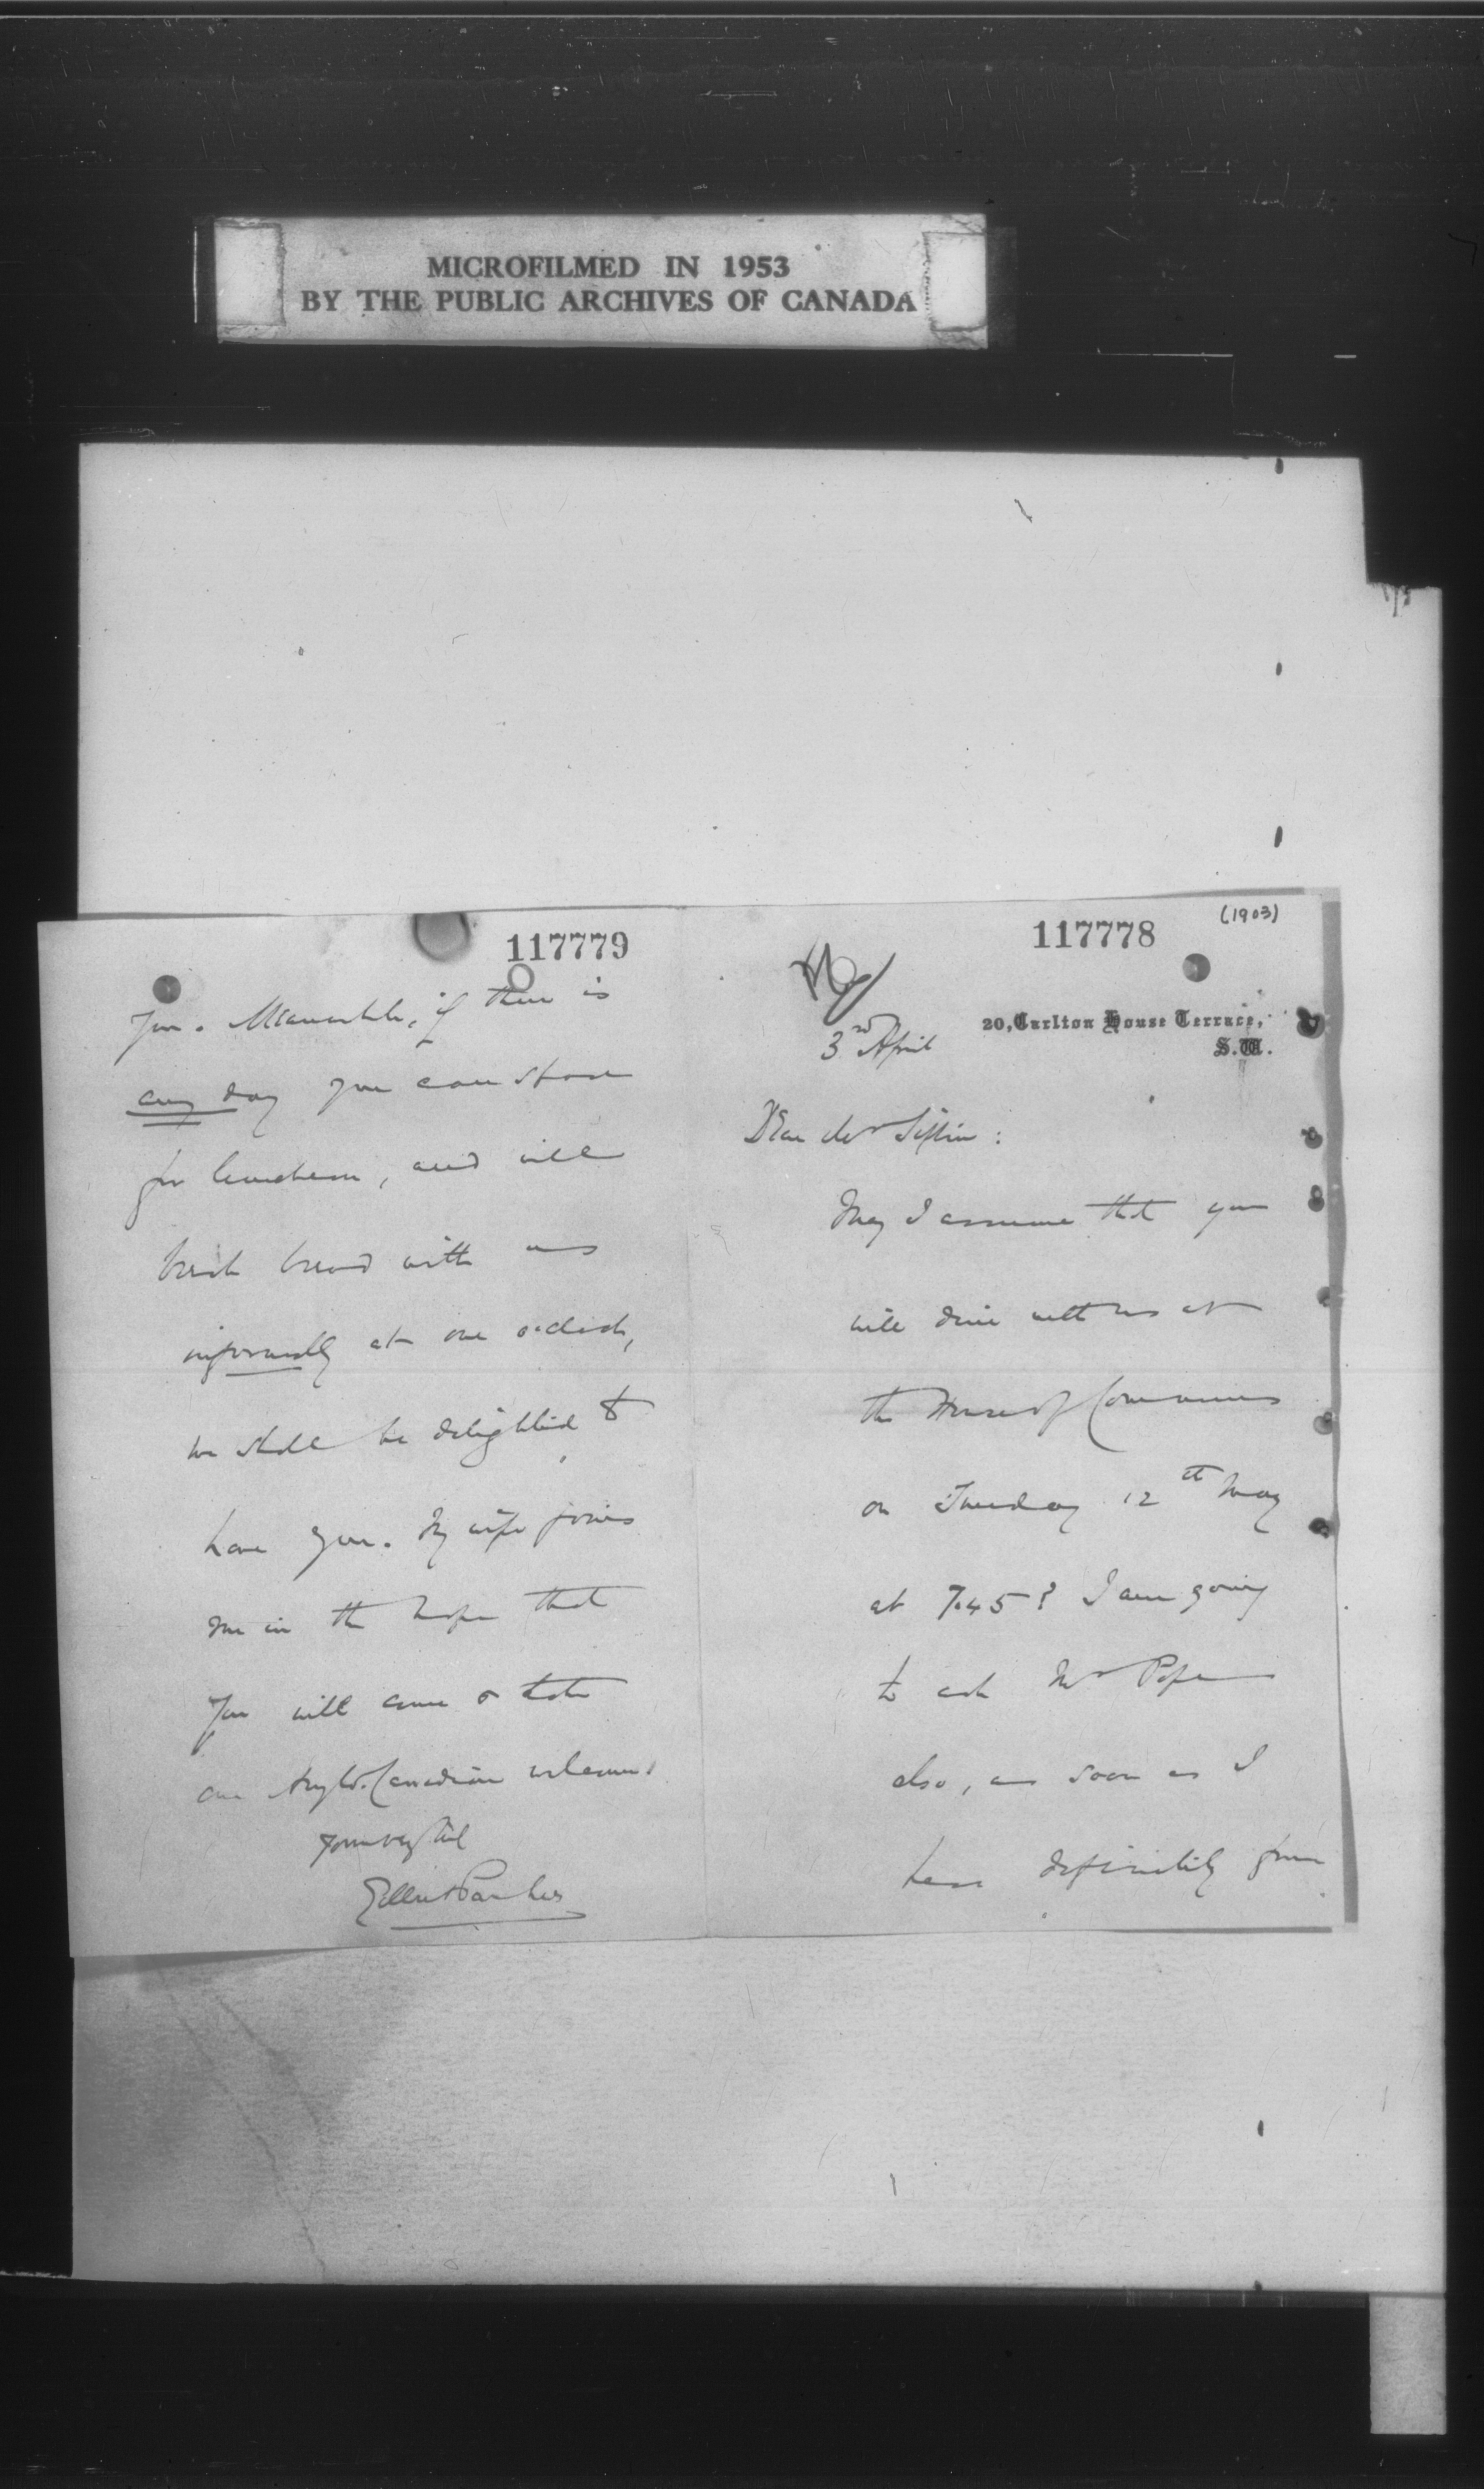 MICROFILMED IN 1953
BY THE PUBLIC ARCHIVES OF CANADA
117778
(1903)
20, Carlton House Terrace,
S.W.
3rd April
Dear Mr Sifton:
May I assume that you
will dine with us at
the House of Commons
on Tuesday 12th May
at 7.45? I am going
to ask Mr Pope
also, as soon as I
hear definitely from
117779
you. Meanwhile, if there is
any day you can spare
for luncheon, and will
break bread with us
informally at one o'clock,
we shall be delighted to
have you. My wife joins
me in the hope that
you will come & take
our Anglo-Canadian welcome.
Yours very truly
Gilbert Parker